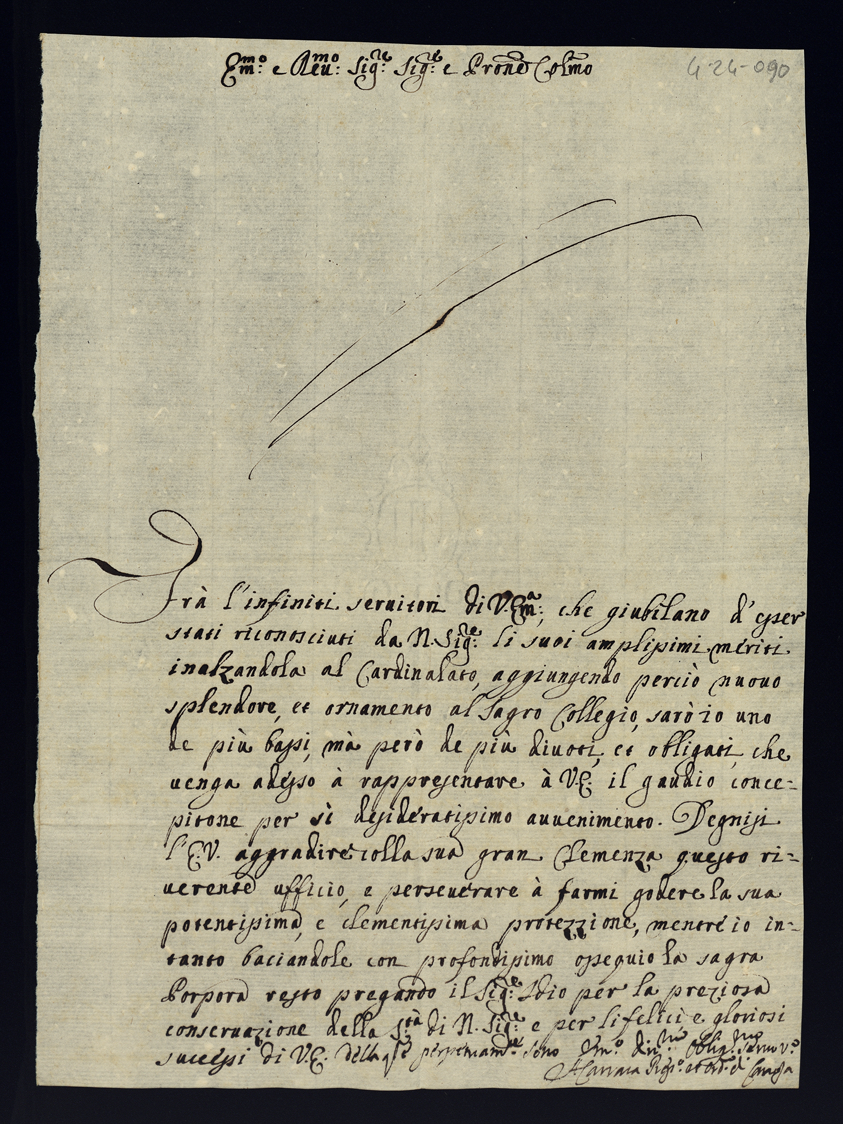 Em.mo e Reu.mo Sig.re Sig.re e Prone Colmo
4-24-090
Frà l'infiniti seruitori di V. Em.a, che giubilano d'esser
stati riconosciuti da N. Sig.re li suoi amplissimi meriti
inalzandola al Cardinalato, aggiungendo perciò nuouo
splendore, et ornamento al Sagro Collegio, sarò io uno
de più bassi, mà però de più diuoti, et obligati, che
uenga adesso à rappresentare à V.E. il gaudio conce-
pitone per sì desideratissimo auuenimento. Degnisi
l'E.V. aggradire colla sua gran Clemenza questo ri-
uerente ufficio, e perseuerare à farmi godere la sua
potentissima, e clementissima protezzione, mentre io in-
tanto baciandole con profondissimo ossequio la sagra
Porpora resto pregando il Sig.re Idio per la preziosa
conseruazione della S.tà di N. Sig.re e per li felici e gloriosi
sucessi di V.E. della q.le perpetuam.te sono Um.o Diu.mo Oblig.mo Seruo u.o